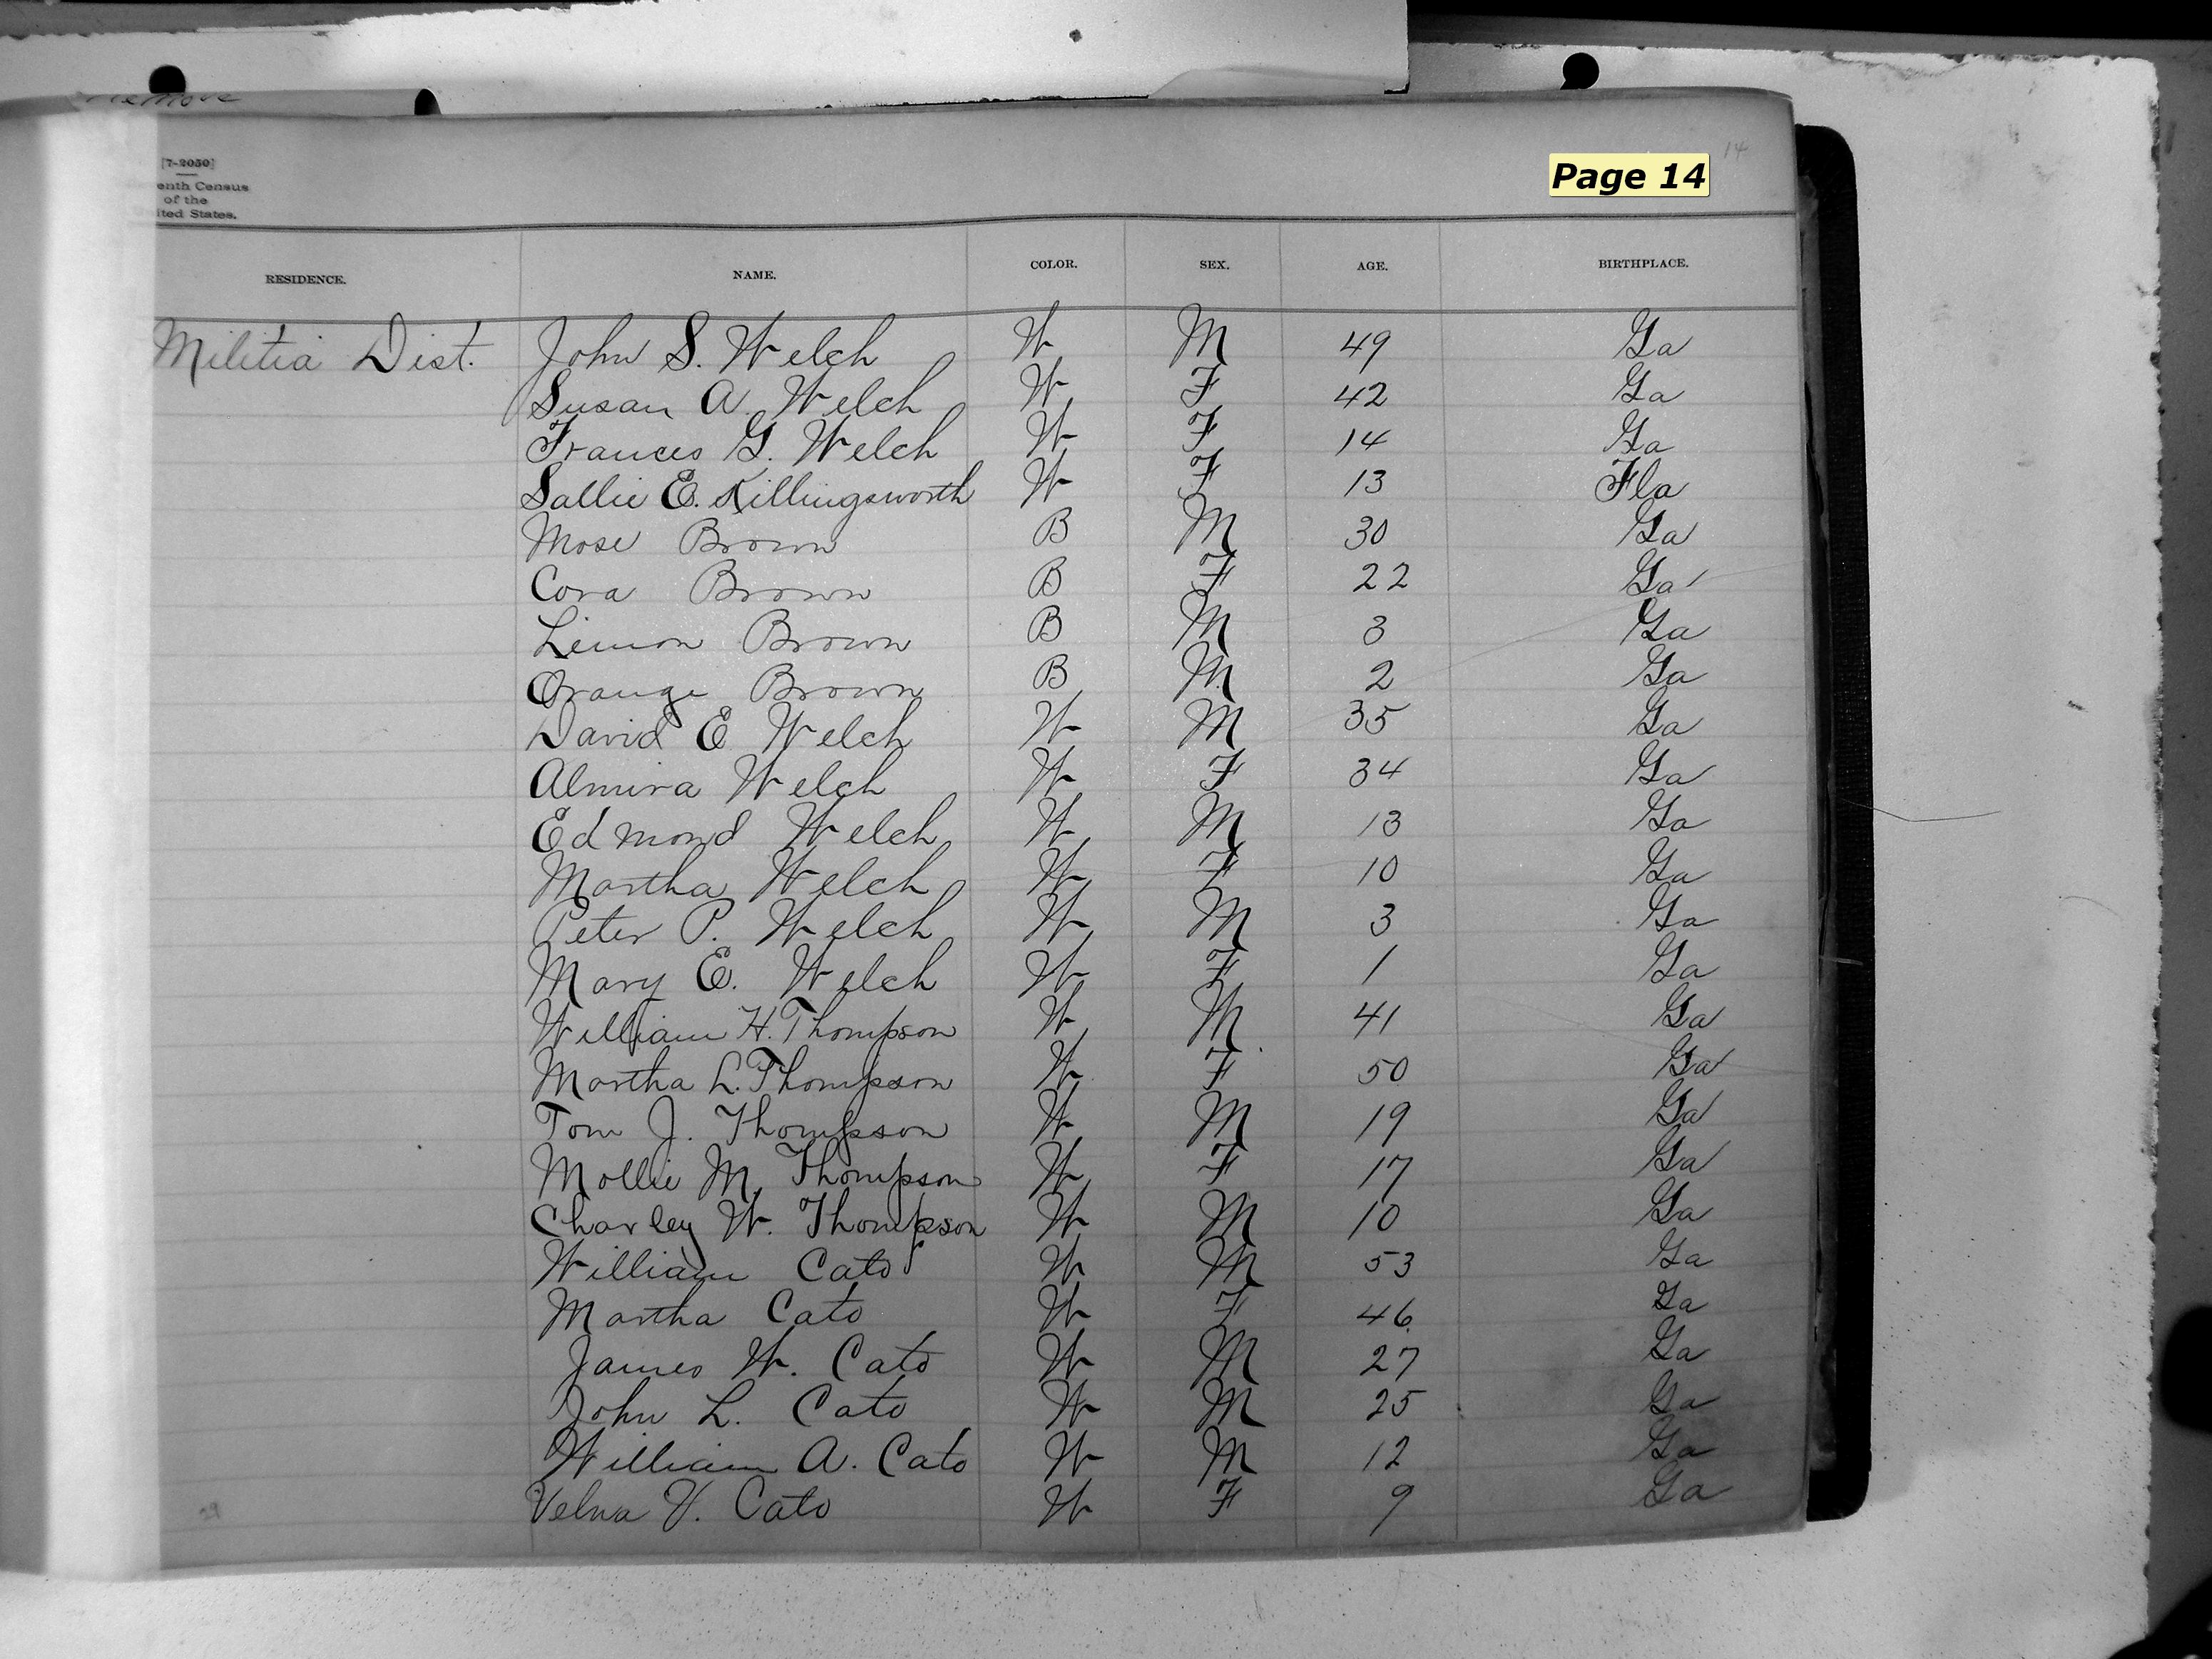 Remove
14
Page 14
[7-2050]
enth Census
of the
ited States.
RESIDENCE. NAME. COLOR. SEX. AGE. BIRTHPLACE.
Militia Dist. John S. Welch W M 49 Ga
Susan A. Welch W F 42 Ga
Frances G. Welch W F 14 Ga
Sallie E. Killingsworth W F 13 Fla
Mose Brown B M 30 Ga
Cora Brown B F 22 Ga
Limon Brown B M 3 Ga
Orange Brown B M 2 Ga
David E Welch W M 35 Ga
Almira Welch W F 34 Ga
Edmond Welch W M 13 Ga
Martha Welch W F 10 Ga
Peter P. Welch W M 3 Ga
Mary E. Welch W F 1 Ga
William H. Thompson W M 41 Ga
Martha L. Thompson W F 50 Ga
Tom J. Thompson W M 19 Ga
Mollie M. Thompson W F 17 Ga
Charley W. Thompson W M 10 Ga
William Cato W M 53 Ga
Martha Cato W F 46 Ga
James W. Cato W M 27 Ga
John L. Cato W M 25 Ga
William A. Cato W M 12 Ga
Velna V. Cato W F 9 Ga